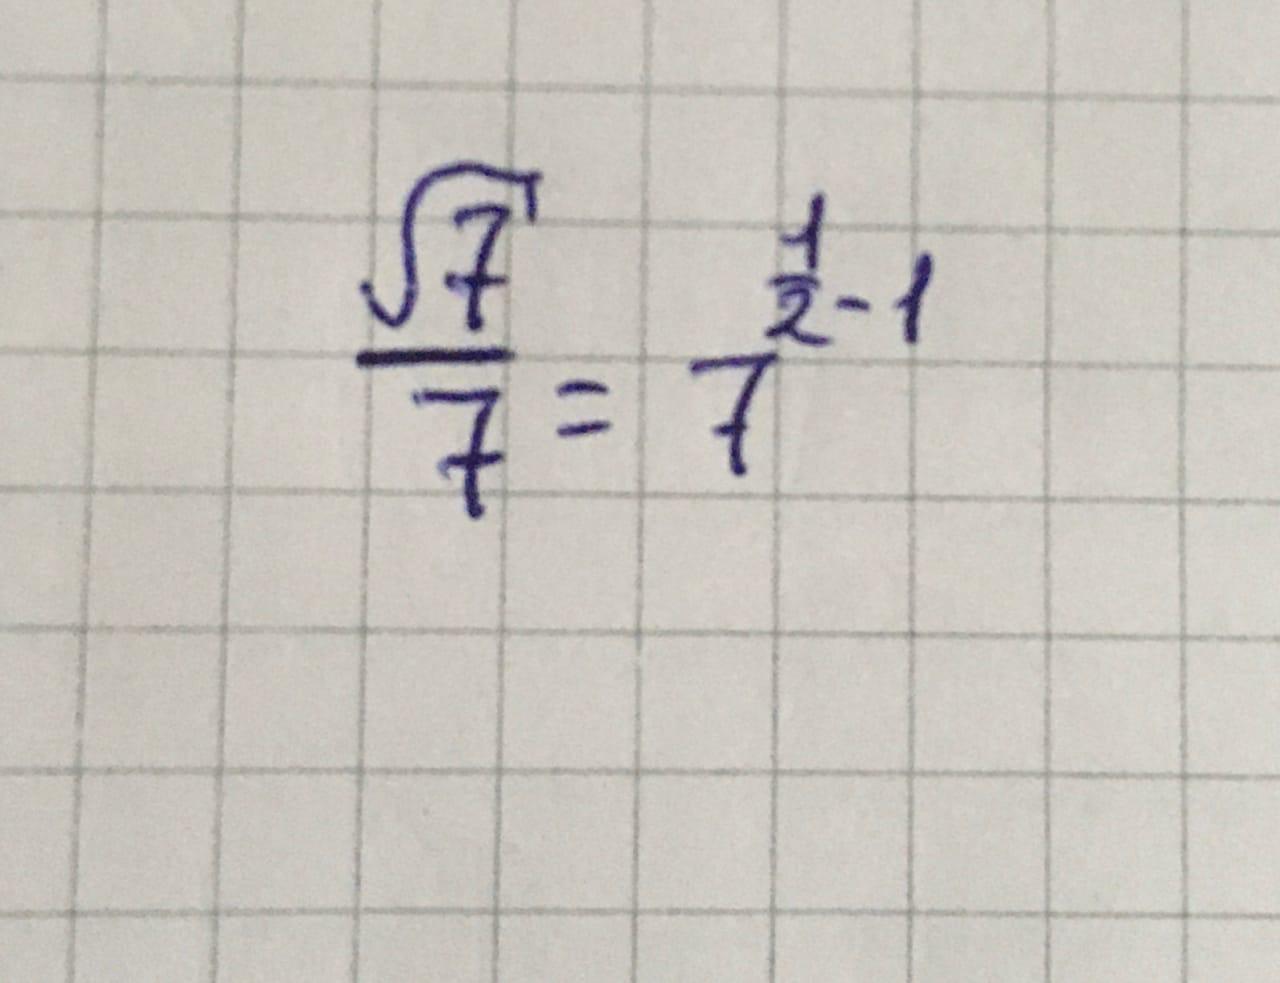 √7/7 = 7^(1/2 - 1)